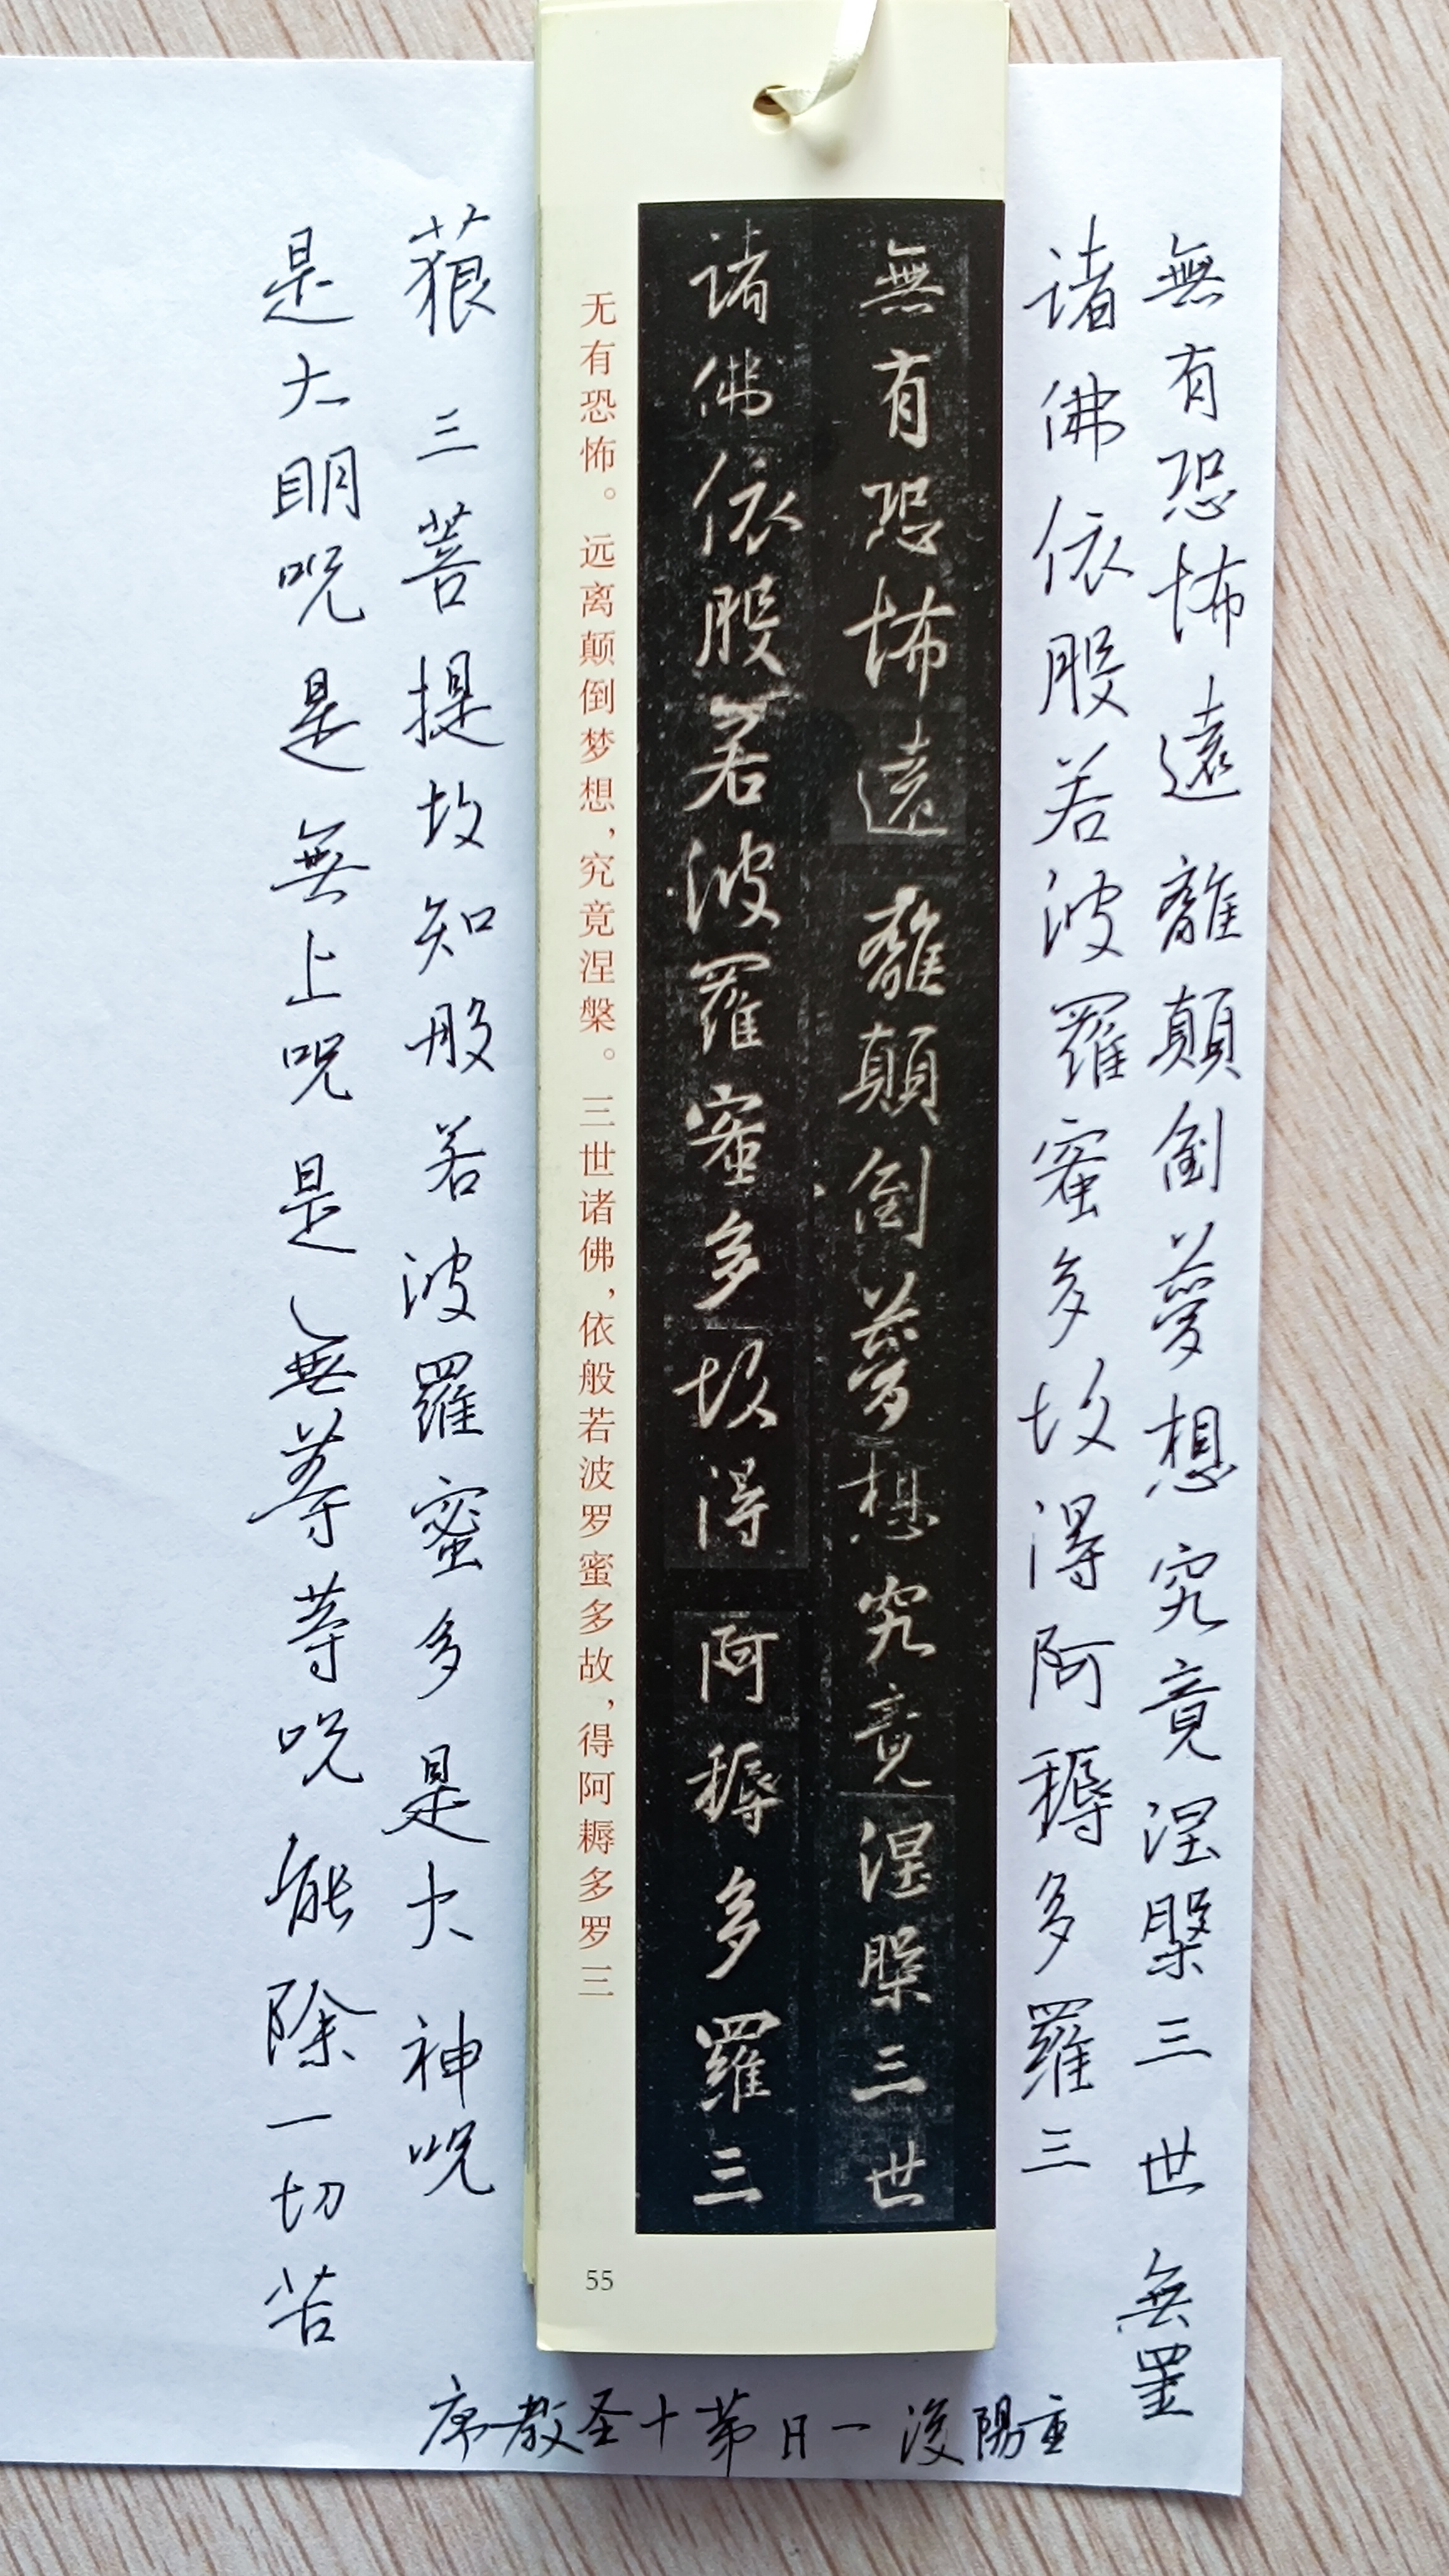 無有恐怖遠離顛倒夢想究竟涅槃三世無罣
诸佛依般若波羅蜜多故得阿耨多羅三
無有恐怖遠離顛倒夢想究竟涅槃三世
諸佛依般若波羅蜜多故得阿耨多羅三
无有恐怖。远离颠倒梦想，究竟涅槃。三世诸佛，依般若波罗蜜多故，得阿耨多罗三
55
藐三菩提故知般若波羅蜜多是大神呪
是大明呪是無上呪是無等等呪能除一切苦
重陽後一日第十圣教序